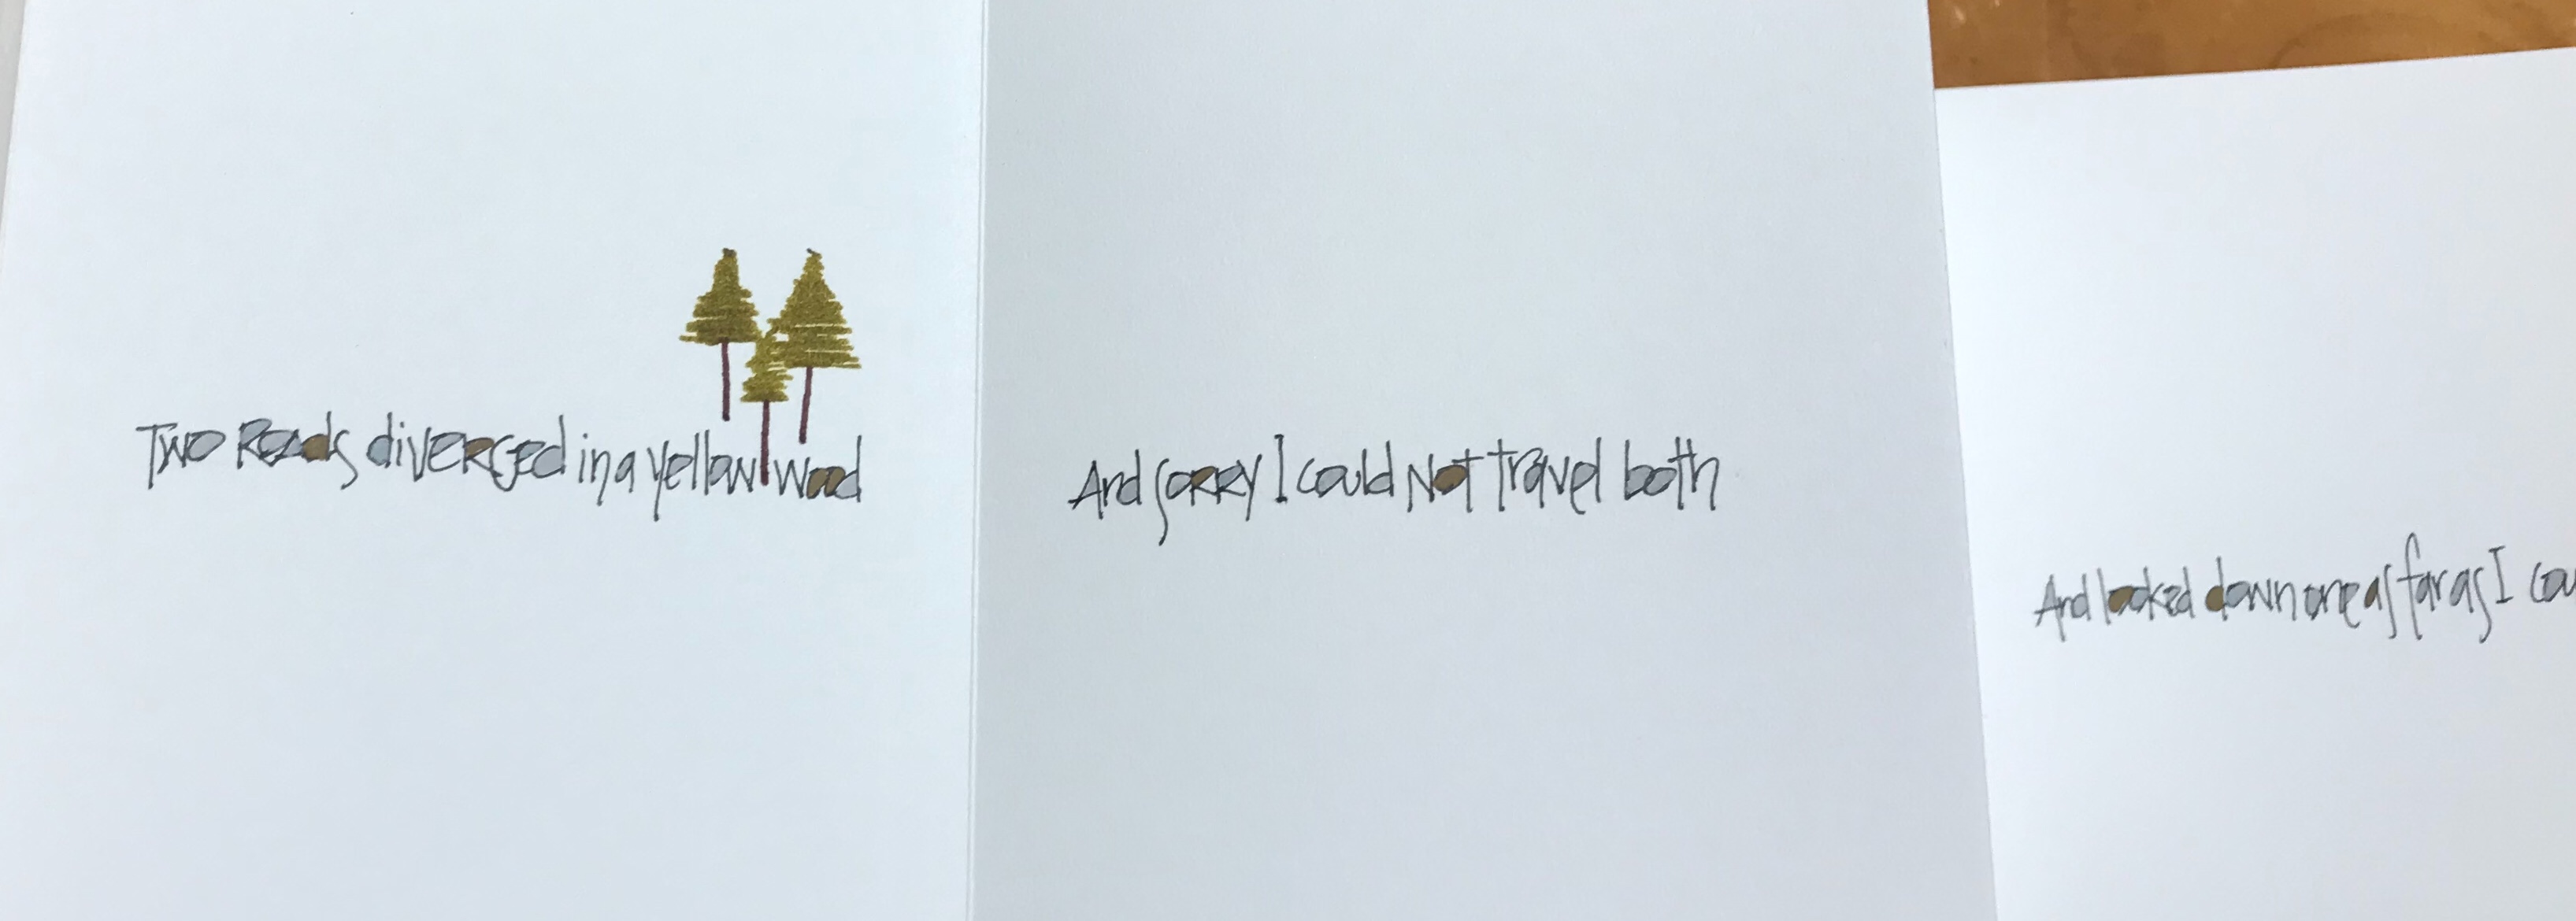 Two Roads diverged in a yellow wood
And sorry I could Not travel both
And looked down one as far as I cou